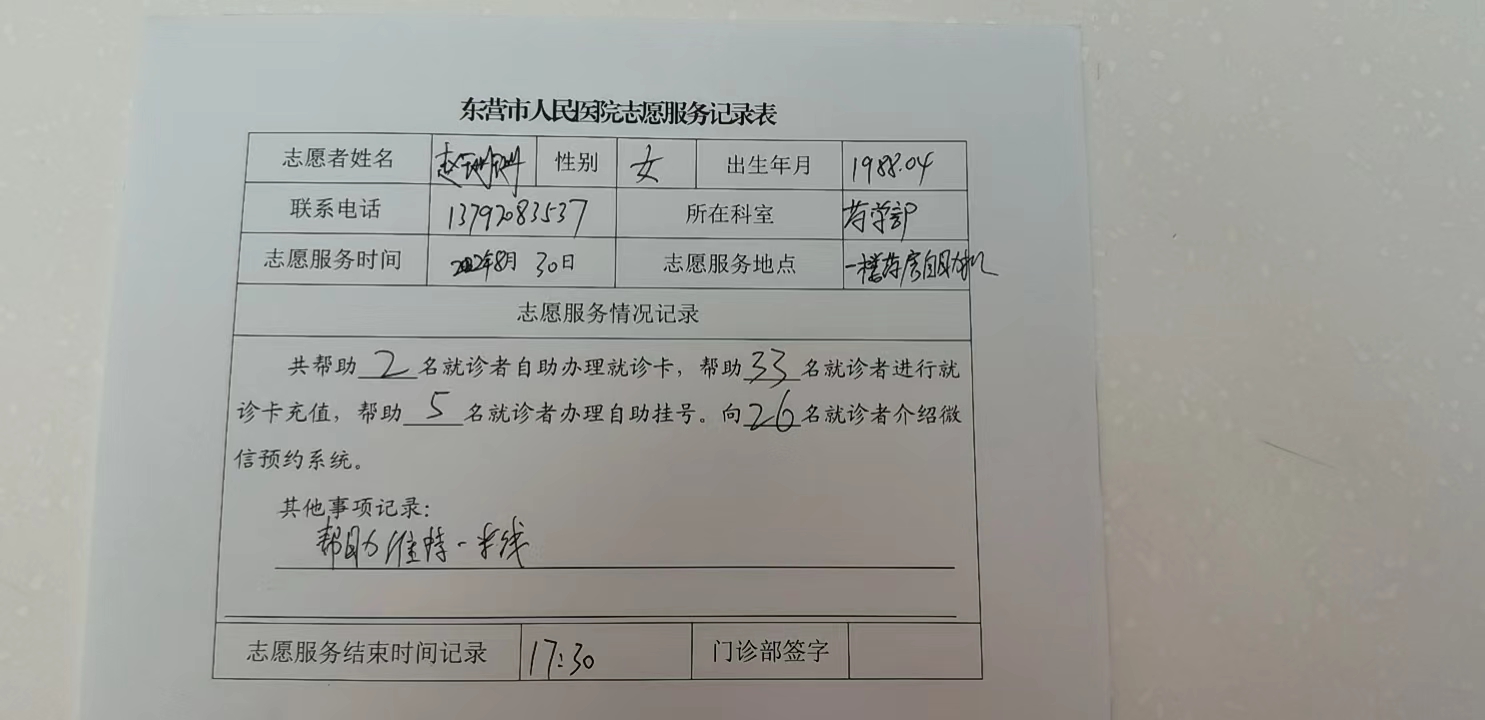 东营市人民医院志愿服务记录表
志愿者姓名 赵 性别 女 出生年月 1988.04
联系电话 13792083537 所在科室 药学部
志愿服务时间 2022年8月 30日 志愿服务地点 一楼药房自助机
志愿服务情况记录
共帮助 2 名就诊者自助办理就诊卡，帮助 33 名就诊者进行就
诊卡充值，帮助 5 名就诊者办理自助挂号。向 26 名就诊者介绍微
信预约系统。
其他事项记录：
帮助维持一米线
志愿服务结束时间记录 17:30 门诊部签字